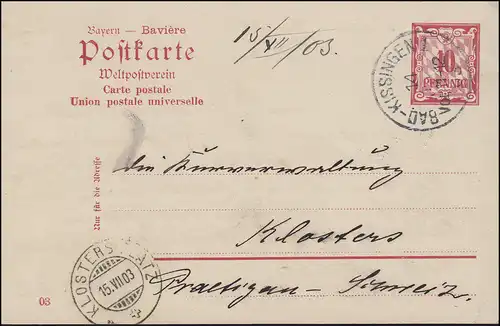 Bayern — Bavière
Postkarte
Weltpostverein
Carte postale
Union postale universelle
15/VII/03.
10
PFENNIG
BAD-KISSINGEN
Nur für die Adresse
die Kurverwaltung
Klosters
Praetigau - Schweiz.
KLOSTERS PLATZ
15.VII.03
03